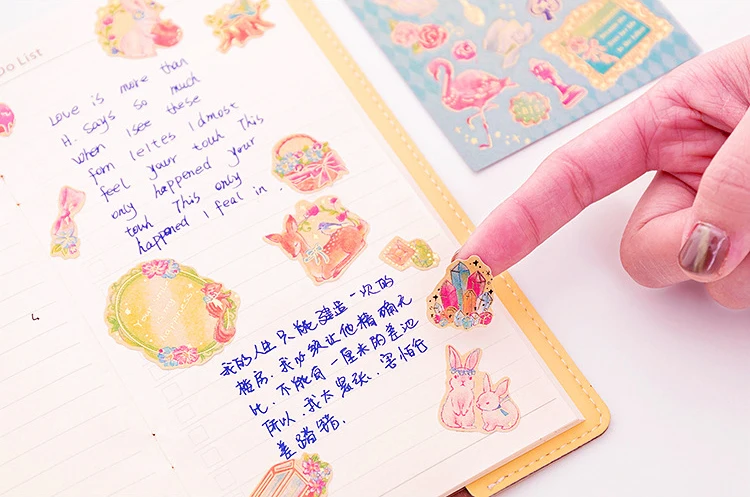 Do List
Love is more than
H. Says so much
when I see these
form leltes I dmost
feel your touh This
only happened your
touh This only
happened I feal in.
我的人生只能建造一次的
楼房.我必须让他精确无
比.不能有一厘米的差池
所以.我太紧张.害怕行
差踏错.